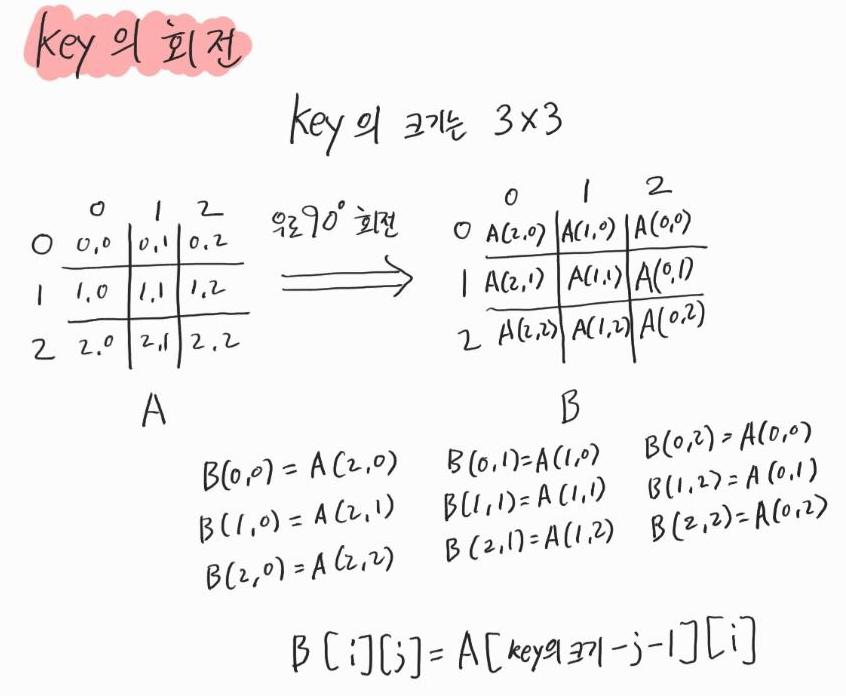 key의 회전
key의 크기는 3×3
0 1 2
0 0,0 0,1 0,2
1 1,0 1,1 1,2
2 2,0 2,1 2,2
A
우로 90° 회전
0 1 2
0 A(2,0) A(1,0) A(0,0)
1 A(2,1) A(1,1) A(0,1)
2 A(2,2) A(1,2) A(0,2)
B
B(0,0) = A(2,0) B(0,1)=A(1,0) B(0,2)=A(0,0)
B(1,0) = A(2,1) B(1,1)=A(1,1) B(1,2)=A(0,1)
B(2,0)=A(2,2) B(2,1)=A(1,2) B(2,2)=A(0,2)
B[i][j]=A[key의 크기-j-1][i]